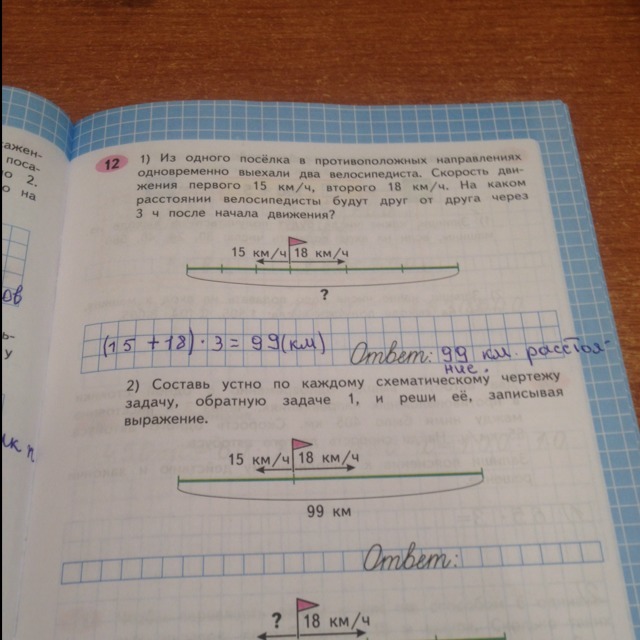 ажен-
поса-
о 2.
о на
ов
ь-
у
12
1) Из одного посёлка в противоположных направлениях
одновременно выехали два велосипедиста. Скорость дви-
жения первого 15 км/ч, второго 18 км/ч. На каком
расстоянии велосипедисты будут друг от друга через
3 ч после начала движения?
15 км/ч 18 км/ч
?
(15 + 18) · 3 = 99 (км) Ответ: 99 км. расстоя-
ние.
2) Составь устно по каждому схематическому чертежу
задачу, обратную задаче 1, и реши её, записывая
выражение.
15 км/ч 18 км/ч
99 км
Ответ:
? 18 км/ч